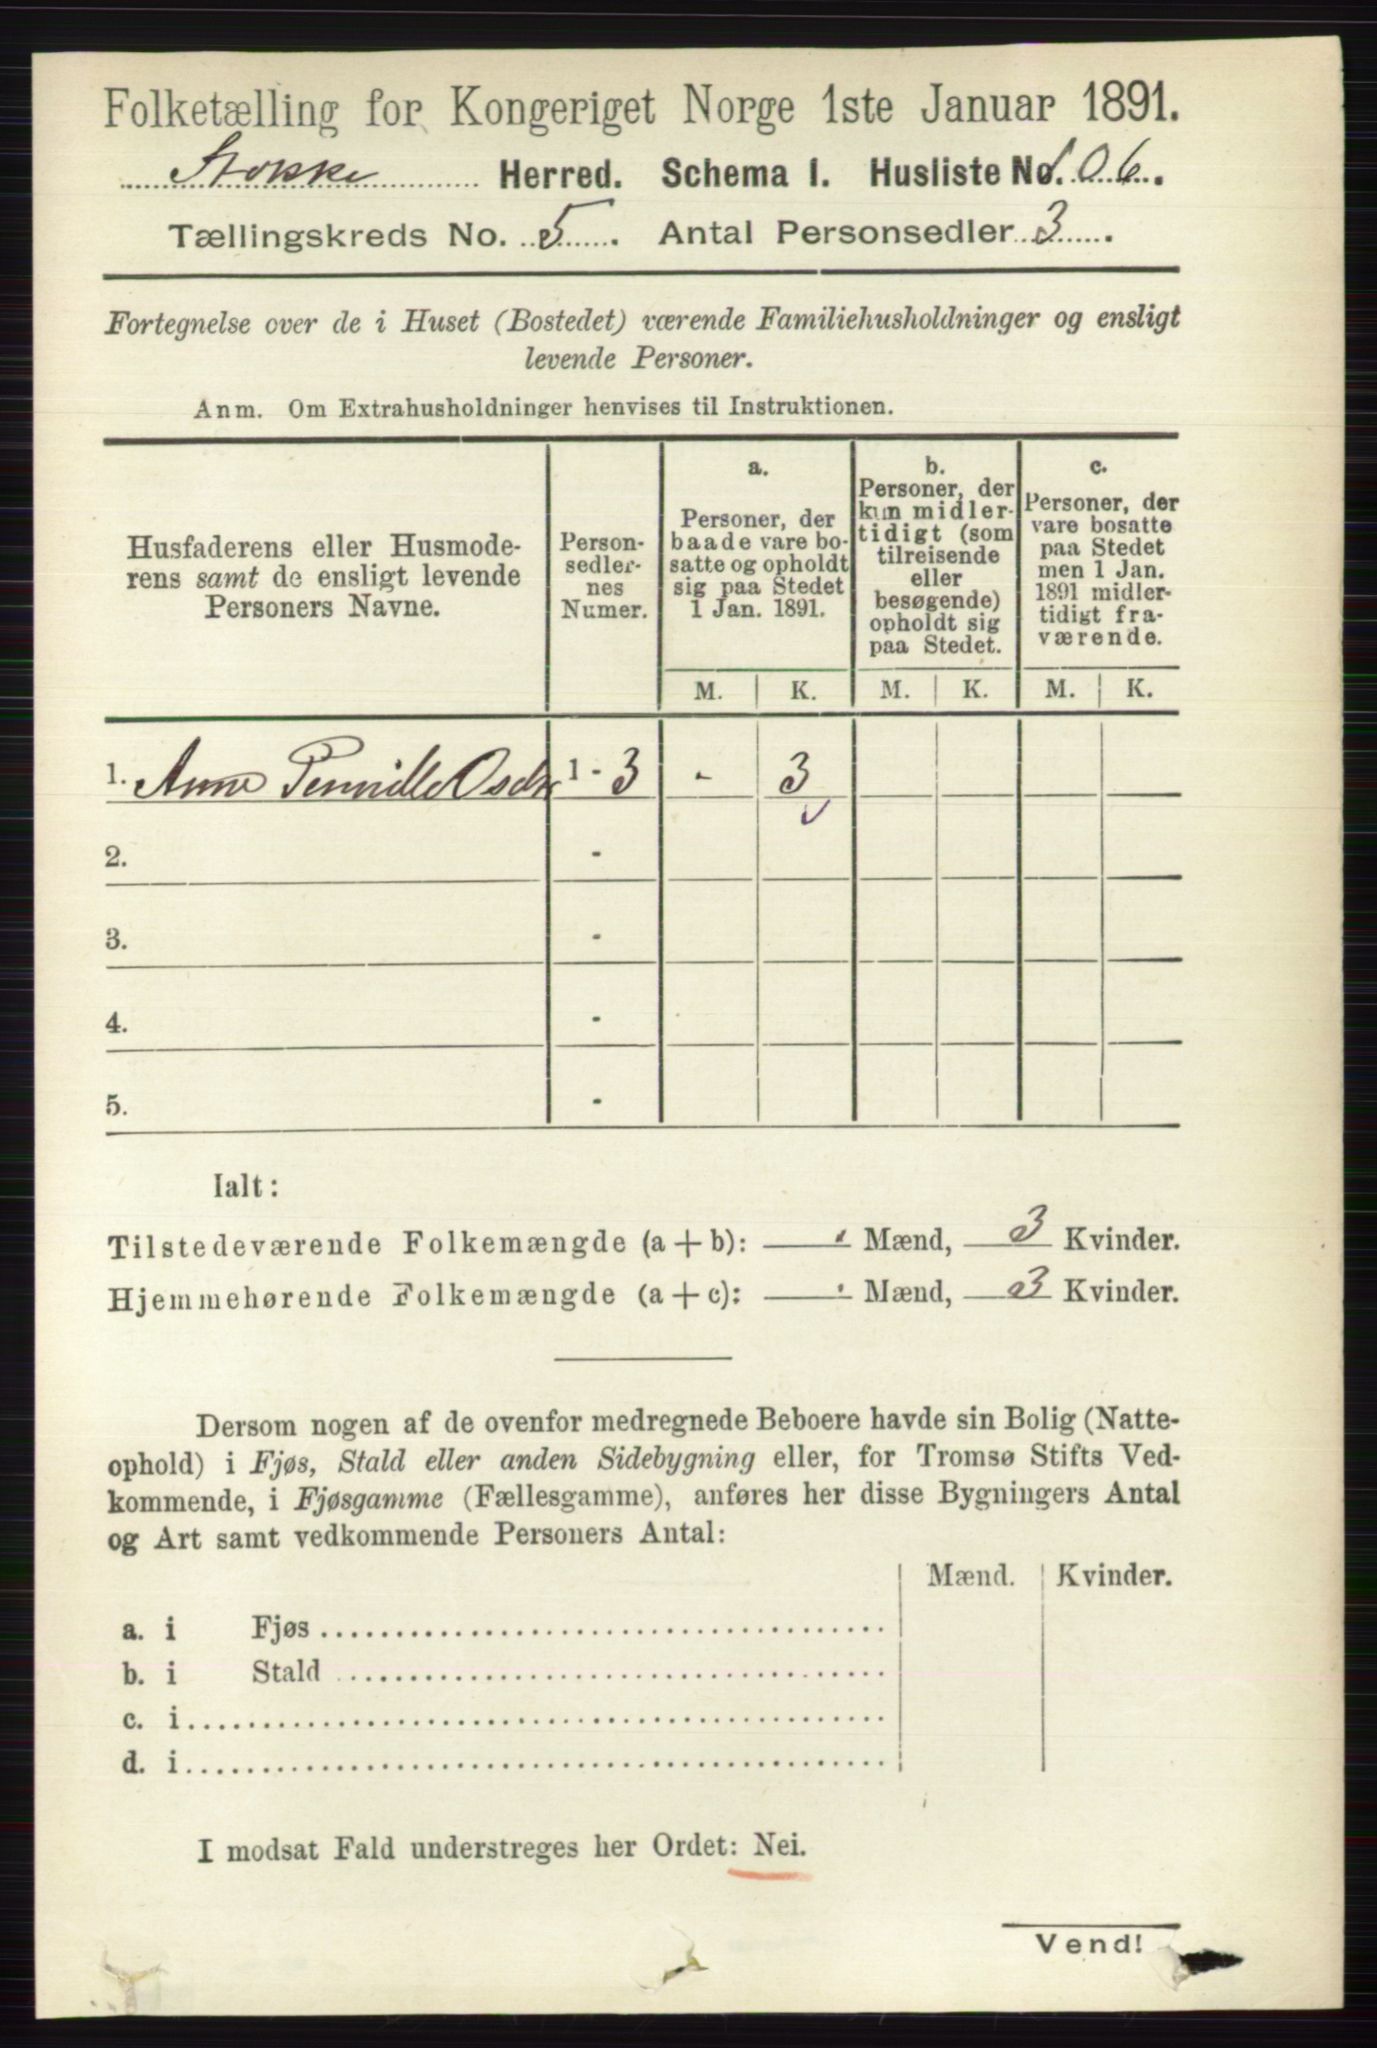 Folketælling for Kongeriget Norge 1ste Januar 1891.
Stokke Herred. Schema I. Husliste No. 106.
Tællingskreds No. 5. Antal Personsedler 3.
Fortegnelse over de i Huset (Bostedet) værende Familiehusholdninger og ensligt
levende Personer.
Anm. Om Extrahusholdninger henvises til Instruktionen.
Husfaderens eller Husmode-
rens samt de ensligt levende
Personers Navne.
Person-
sedler-
nes
Numer.
a.
Personer, der
baade vare bo-
satte og opholdt
sig paa Stedet
1 Jan. 1891.
b.
Personer, der
kun midler-
tidigt (som
tilreisende
eller
besøgende)
opholdt sig
paa Stedet.
c.
Personer, der
vare bosatte
paa Stedet
men 1 Jan.
1891 midler-
tidigt fra-
værende.
M. K. M. K. M. K.
1. Anne Pernille 1 - 3 - 3
2. -
3. -
4. -
5. -
Ialt:
Tilstedeværende Folkemængde (a + b): Mænd, 3 Kvinder.
Hjemmehørende Folkemængde (a + c): Mænd, 3 Kvinder.
Dersom nogen af de ovenfor medregnede Beboere havde sin Bolig (Natte-
ophold) i Fjøs, Stald eller anden Sidebygning eller, for Tromsø Stifts Ved-
kommende, i Fjøsgamme (Fællesgamme), anføres her disse Bygningers Antal
og Art samt vedkommende Personers Antal:
Mænd. Kvinder.
a. i Fjøs
b. i Stald
c. i
d. i
I modsat Fald understreges her Ordet: Nei.
Vend!